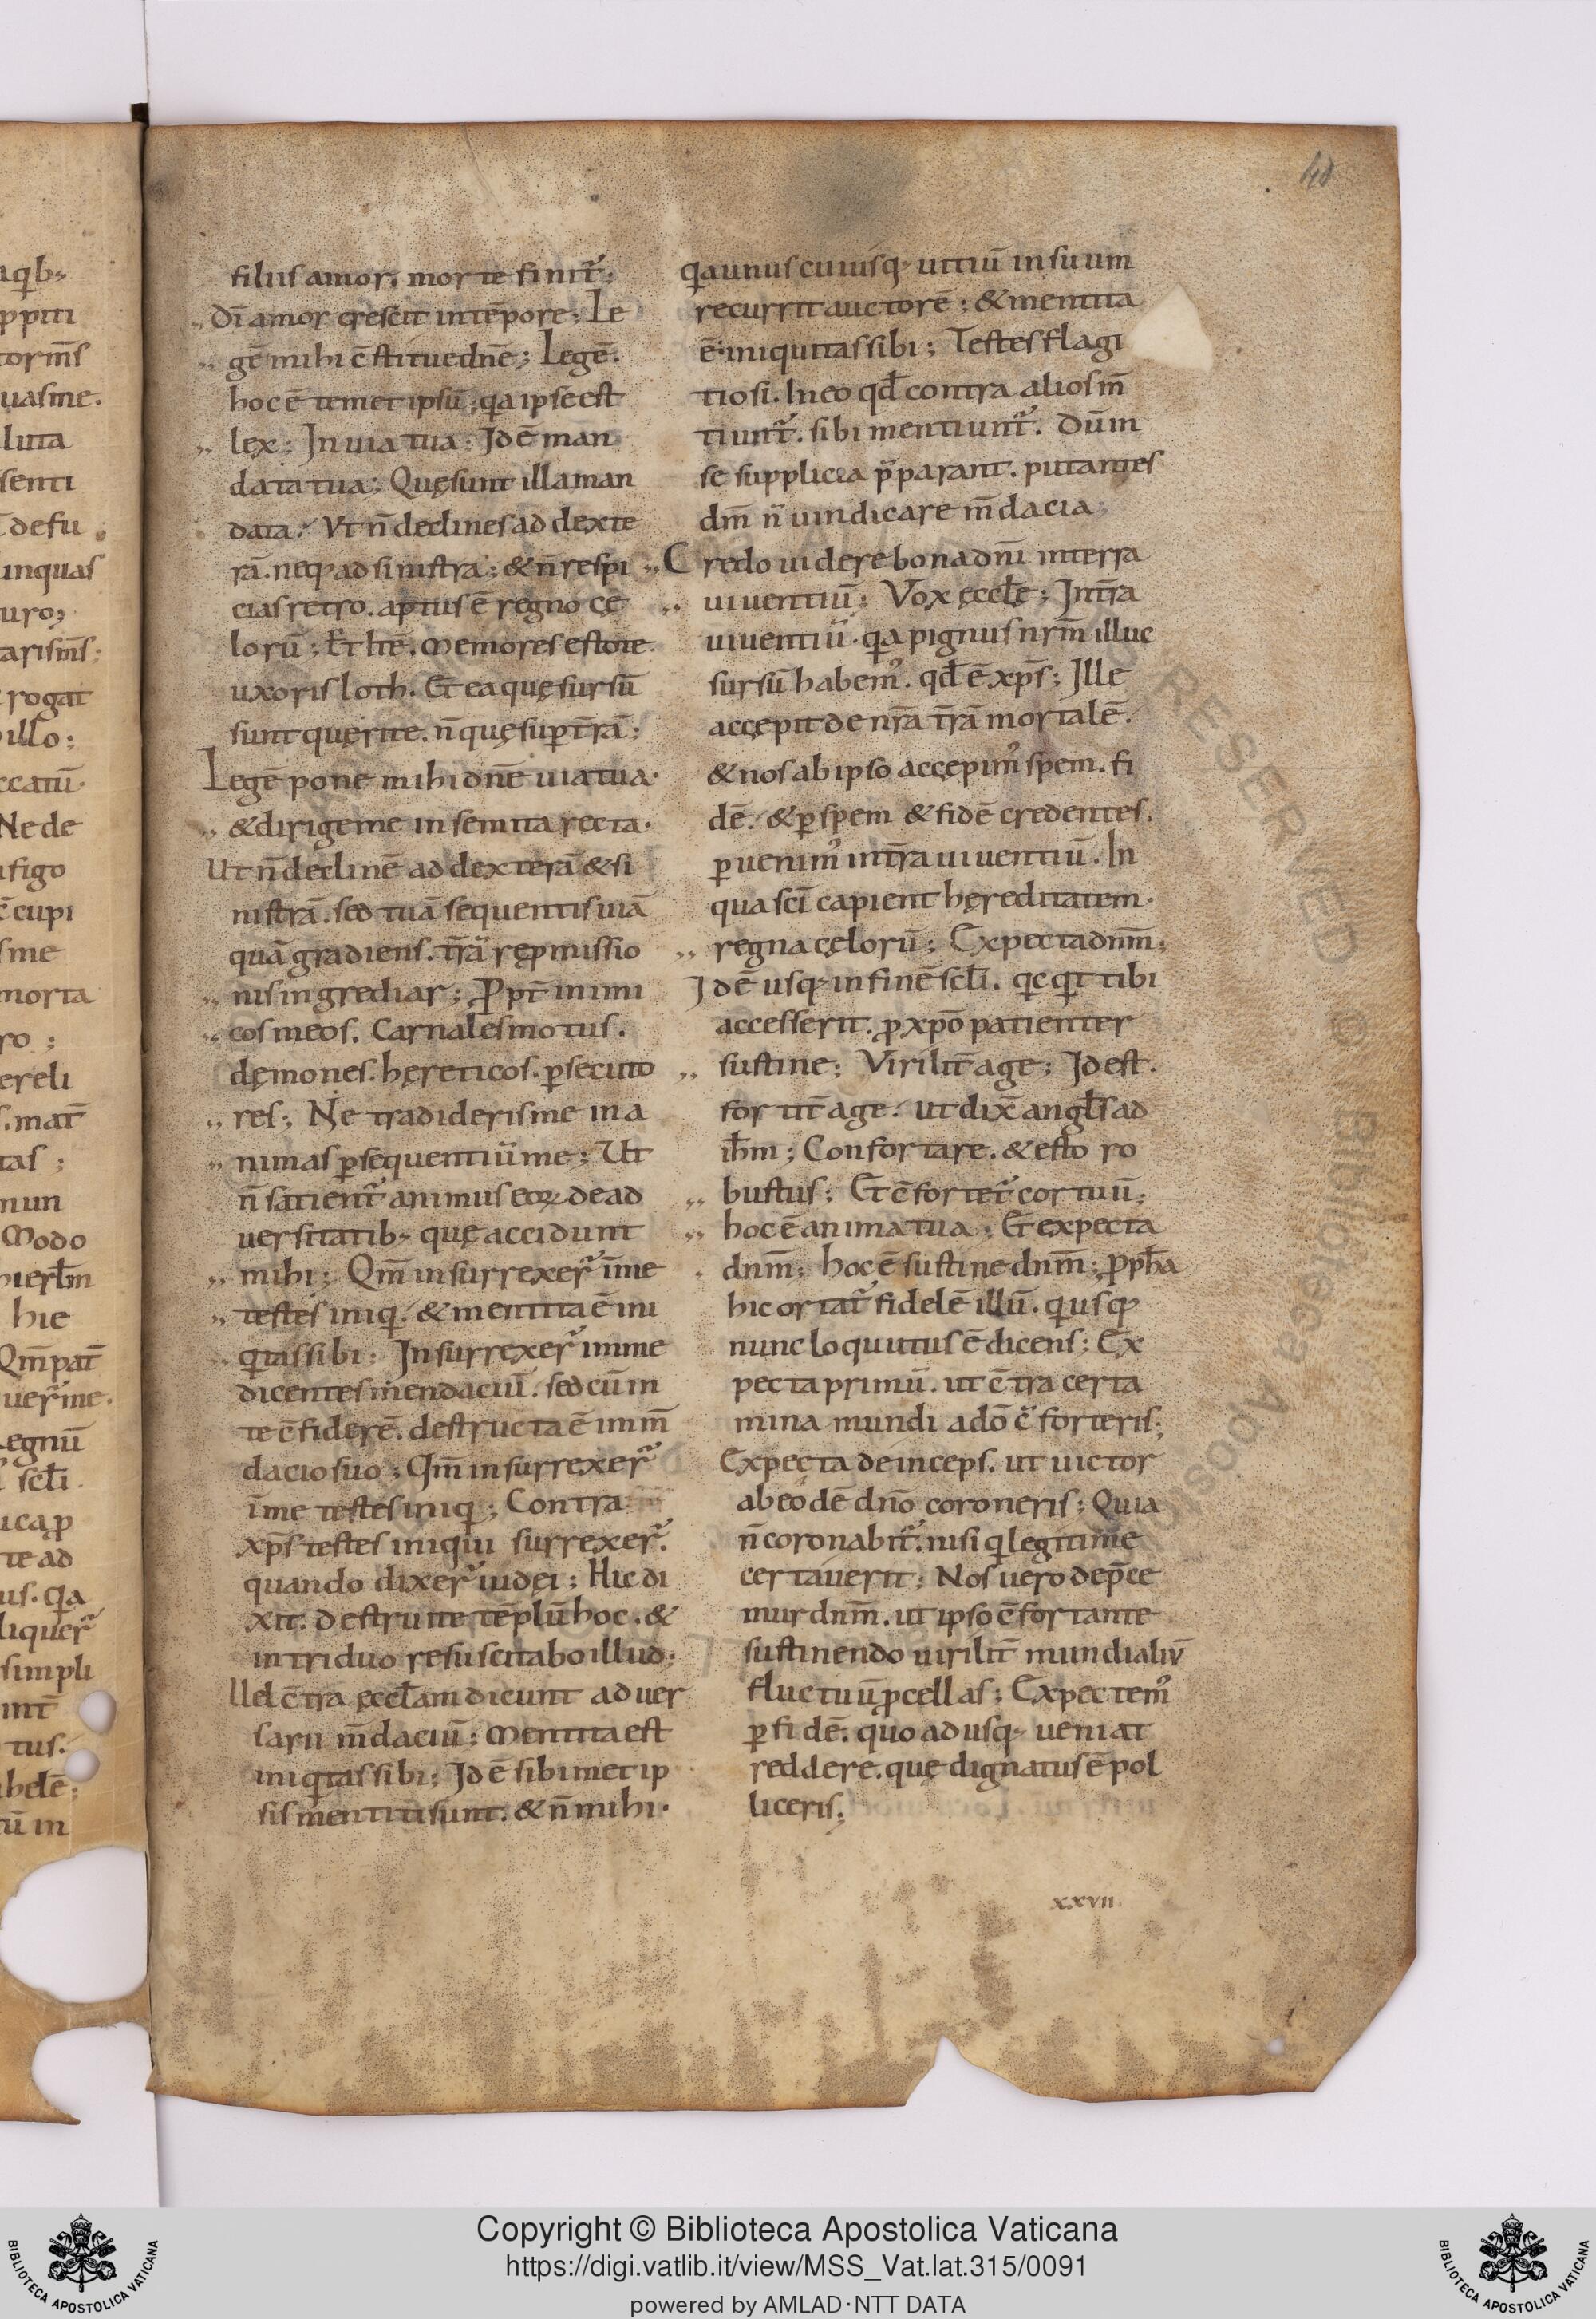 40
filius amor, morte finit᷒;
„ Dī amor crescit intēpore; Le
„ gē mihi c̄stituednē; Legē.
hoc ē temet ipsū; qa ipse est
„ lex; In uia tua; Id ē man
data tua; Quę sunt illa man
data? Vt n̄ declines ad dexte
rā. neq; ad sinistrā; & n̄ respi
cias retro. aptus ē regno cę
lorū; Et itē. Memores estote
uxoris loth. Et ea quę sursū
sunt quęrite. n̄ quę sup t̄rā;
Legē pone mihi dn̄e uia tua.
„ & dirige me in semita recta.
Ut n̄ declinē ad dexterā & si
nistrā. sed tuā sequentis uiā
quā gradiens. t̄rā rep̱missio
„ nis ingrediar; Ppt̄ inimi
„ cos meos. Carnales motus.
dęmones. hęreticos. psecuto
„ res; Ne tradideris me in a
„ nimas psequentiū me; Ut
n̄ satient᷒ animus eoꝝ de ad
uersitatib; quę accidunt
„ mihi; Qm̄ insurrexer᷒ ī me
„ testes iniqi. & mentita ē ini
„ qitas sibi; Insurrexer᷒ in me
dicentes mendaciū. sed cū in
te c̄fiderē. destructa ē in m̄
dacio suo; Qm̄ insurrexer᷒
ī me testes iniqi; Contra
xp̄s testes iniqui surrexer᷒.
quando dixer᷒ iudęi; Hic di
xit. destruite tēplū hoc. &
in triduo resuscitabo illud.
Uel c̄tra ęccl̄am dicunt aduer
sarii m̄daciū; Mentita est
iniqitas sibi; Id ē sibimet ip
sis mentiti sunt. & n̄ mihi.
qa unus cuiusq; uitiū in suum
recurrit auctorē; & mentita
ē iniquitas sibi; Testes flagi
tiosi. In eo qd̄ contra alios m̄
tiunt᷒. sibi mentiunt᷒. Dū in
se supplicia p̄parant. putantes
dm̄ n̄ uindicare m̄dacia;
„ Credo uidere bona dn̄i in terra
„ uiuentiū; Vox ęccl̄ę; In t̄ra
uiuentiū. qa pignus nr̄m illuc
sursū habem᷒. qd̄ ē xp̄s; Ille
accępit de nr̄a t̄rā mortalē.
& nos ab ipso accępim᷒ spem. fi
dē. & p spem & fidē credentes.
puenim᷒ in t̄ra uiuentiū. In
qua sc̄i capient hęreditatem.
„ regna cęlorū; Expecta dnm̄;
Id ē usq; in finē scl̄i. qicqit tibi
accesserit. p xp̄o patienter
„ sustine; Virilit̄ age; Id est.
fortit̄ age. ut dix̄ angl̄s ad
ih̄m; Confortare. & esto ro
„ bustus; Et c̄fortet᷒ cor tuū;
„ hoc ē anima tua; Et expecta
dnm̄; hoc ē sustine dnm̄; ppħa
hic ortat᷒ fidelē illū. qi usq;
nunc loquutus ē dicens; Ex
pecta primū. ut c̄tra certa
mina mundi a dō c̄forteris;
Expecta deinceps. ut uictor
ab eodē dn̄o coroneris; Quia
n̄ coronabit᷒. nisi qi legitime
certauerit; Nos uero dep̄ce
mur dnm̄. ut ipso c̄fortante
sustinendo uirilit̄ mundialiū
fluctuū pcellas; Expectem᷒
p fidē. quo adusq; ueniat
reddere. quę dignatus ē pol
liceris;
xxvii
Copyright © Biblioteca Apostolica Vaticana
https://digi.vatlib.it/view/MSS_Vat.lat.315/0091
powered by AMLAD·NTT DATA
BIBLIOTECA APOSTOLICA VATICANA
BIBLIOTECA APOSTOLICA VATICANA